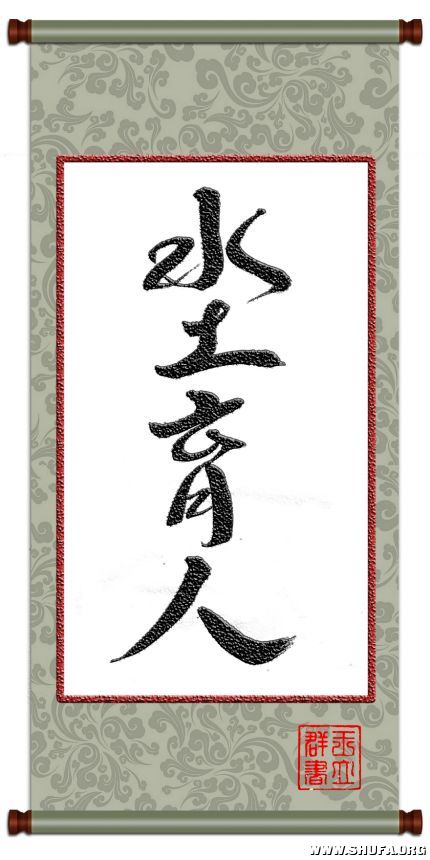 水土育人
WWW.SHUFA.ORG